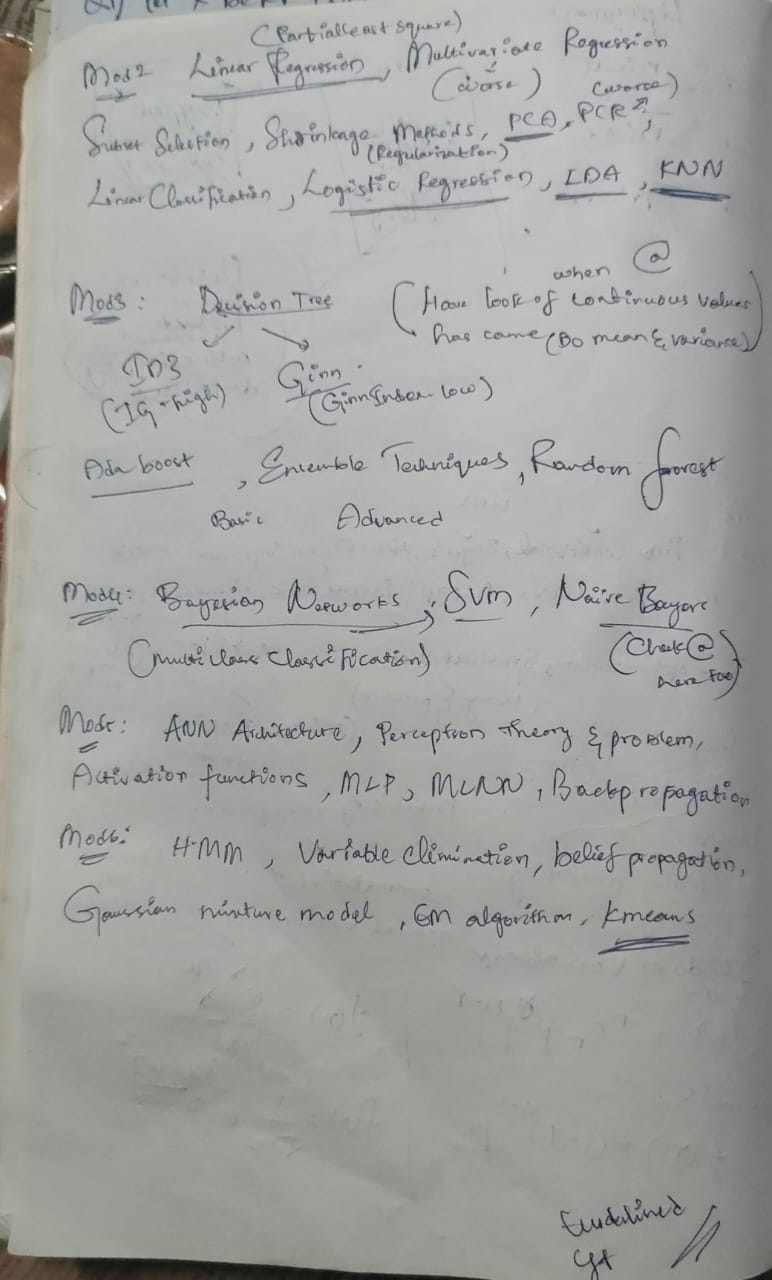 (Partial least square)
Mod2 Linear Regression, Multivariate Regression
(worse) (worse)
Subset Selection, Shrinkage Methods, PCA, PCR?,
(Regularization)
Linear Classification, Logistic Regression, LDA, KNN
when @
Mod3: Decision Tree (Have look of continuous values
has come (Do mean & variance)
ID3 Ginn
(IG-high) (GinnIndex-low)
Ada boost, Ensemble Techniques, Random forest
Basic Advanced
Mod4: Bayesian Networks, SVM, Naïve Bayes
(multi class Classification) (Check @
here too)
Mod5: ANN Architecture, Perceptron Theory & problem,
Activation functions, MLP, MLNN, Backpropagation
Mod6: HMM, Variable elimination, belief propagation,
Gaussian mixture model, EM algorithm, Kmeans